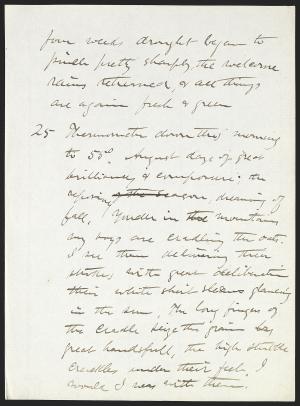 four weeks drought began to
pinch pretty sharply, the welcome
rains returned, & all things
are again fresh & green
25 Thermometer down this morning
to 50°. August days of great
brilliancy & composure; the
season, dreaming of
fall. Yonder in the mountains
my boys are cradling the oats.
I see them delivering their
strokes with great deliberation
their white shirt sleeves glancing
in the sun, The long fingers of
the cradle seize the grain by
great handsfull, the high stubble
crackles under their feet. I
would I was with them.